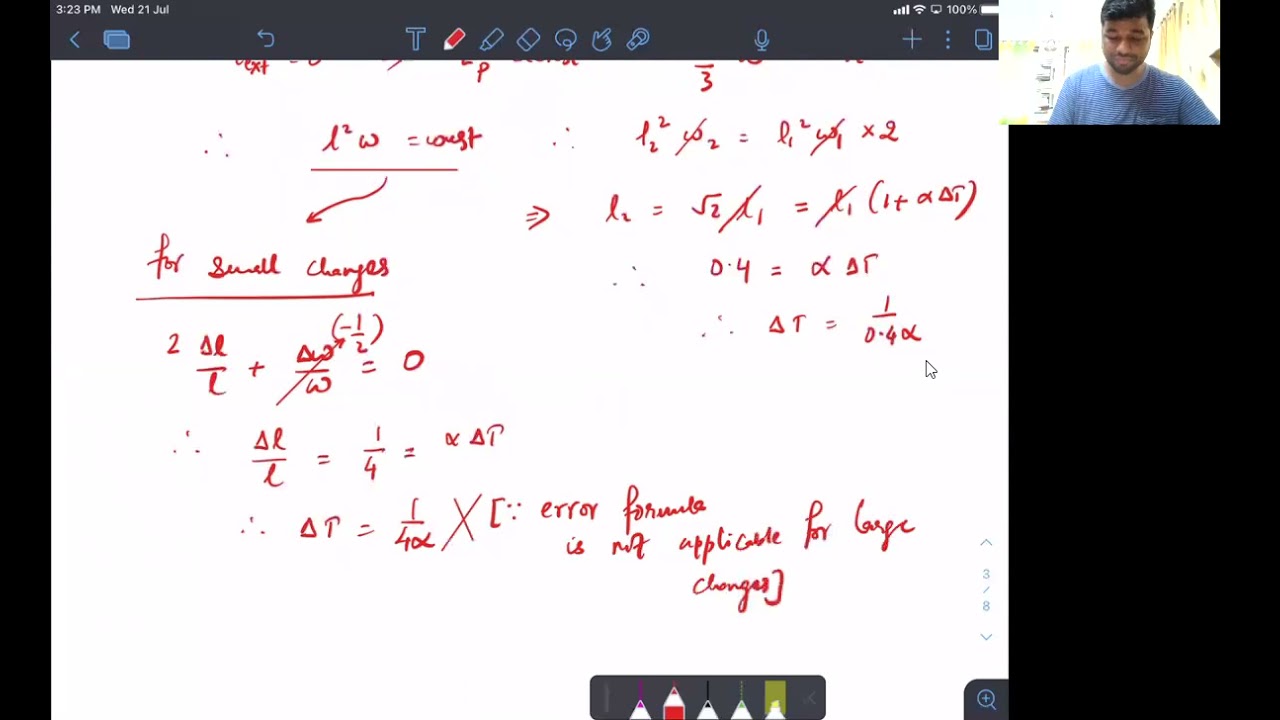 3:23 PM Wed 21 Jul
100%
T
ext
p
3
∴ l²ω = const
∴ l₂² ω₂ = l₁² ω₁ × 2
⇒ l₂ = √2 l₁ = l₁ (1 + α ΔT)
for small changes
∴ 0.4 = α ΔT
∴ ΔT = 1/0.4α
2 Δl/l + Δω/ω (-1/2) = 0
∴ Δl/l = 1/4 = α ΔT
∴ ΔT = 1/4α X [∵ error formula
is not applicable for large
changes]
3
/
8